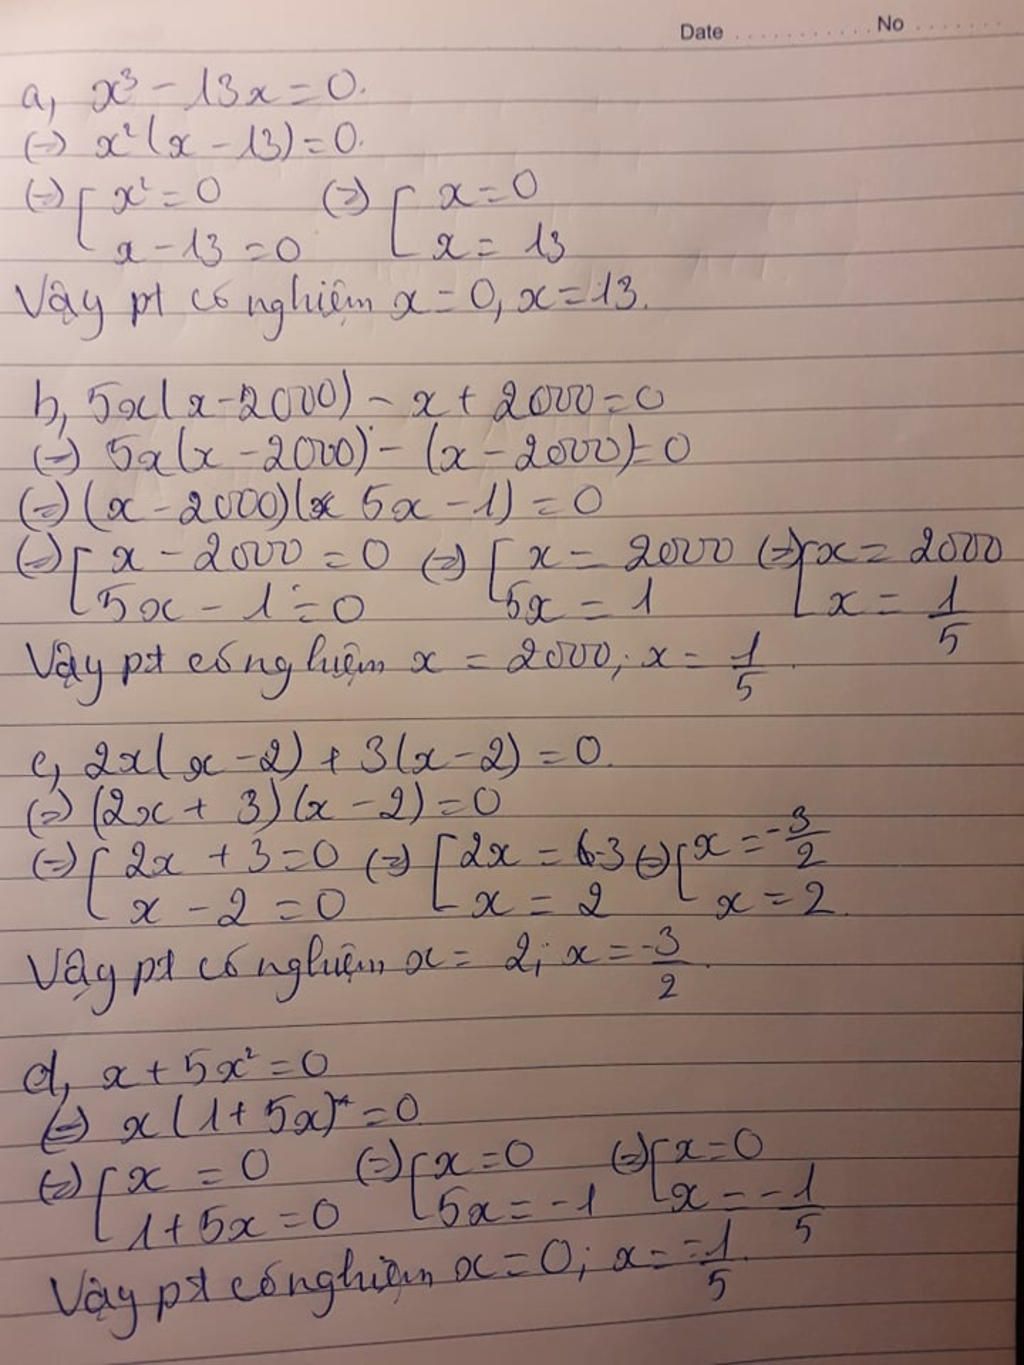 Date ........... No .......
a, x³ - 13x = 0.
(=) x²(x - 13) = 0.
(=) [ x² = 0 (=) [ x = 0
x - 13 = 0 x = 13
Vậy pt có nghiệm x = 0, x = 13.
b, 5x(x - 2000) - x + 2000 = 0
(=) 5x(x - 2000) - (x - 2000) = 0
(=) (x - 2000)(5x - 1) = 0
(=) [ x - 2000 = 0 (=) [ x = 2000 (=) [ x = 2000
5x - 1 = 0 5x = 1 x = 1/5
Vậy pt có nghiệm x = 2000; x = 1/5.
c, 2x(x - 2) + 3(x - 2) = 0.
(=) (2x + 3)(x - 2) = 0
(=) [ 2x + 3 = 0 (=) [ 2x = -3 (=) [ x = -3/2
x - 2 = 0 x = 2 x = 2.
Vậy pt có nghiệm x = 2; x = -3/2.
d, x + 5x² = 0
(=) x(1 + 5x) = 0
(=) [ x = 0 (=) [ x = 0 (=) [ x = 0
1 + 5x = 0 5x = -1 x = -1/5
Vậy pt có nghiệm x = 0; x = -1/5.